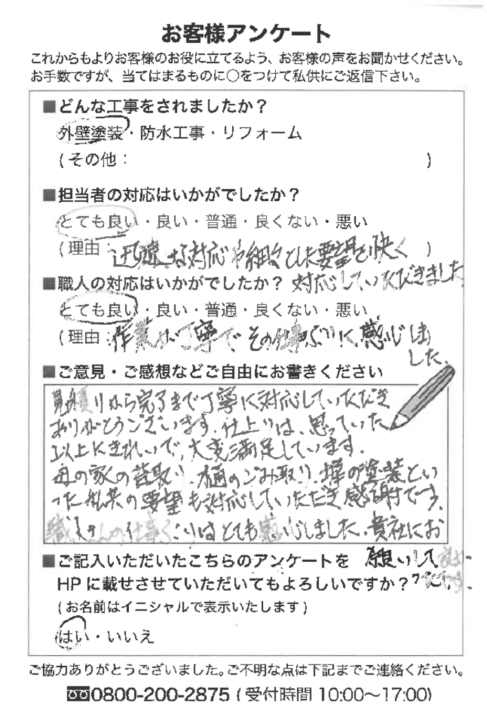 お客様アンケート
これからもよりお客様のお役に立てるよう、お客様の声をお聞かせください。
お手数ですが、当てはまるものに○をつけて私供にご返信下さい。
■どんな工事をされましたか？
外壁塗装・防水工事・リフォーム
(その他：　)
■担当者の対応はいかがでしたか？
とても良い・良い・普通・良くない・悪い
(理由：迅速な対応や細々とした要望も快く)
対応していただきました
■職人の対応はいかがでしたか？
とても良い・良い・普通・良くない・悪い
(理由：作業が丁寧でその仕事ぶりに感心しま
した。
■ご意見・ご感想などご自由にお書きください
見積りから完了まで丁寧に対応していただき
ありがとうございます。仕上りは、思っていた
以上にきれいで、大変満足しています。
母の家の苔取り、樋のごみ取り、塀の塗装とい
った私共の要望も対応していただき感謝です。
職人さんの仕事ぶりはとても感心しました。貴社にお
願いして
■ご記入いただいたこちらのアンケートを
HPに載せさせていただいてもよろしいですか？
(お名前はイニシャルで表示いたします)
はい・いいえ
ご協力ありがとうございました。ご不明な点は下記までご連絡ください。
0800-200-2875 (受付時間 10:00〜17:00)